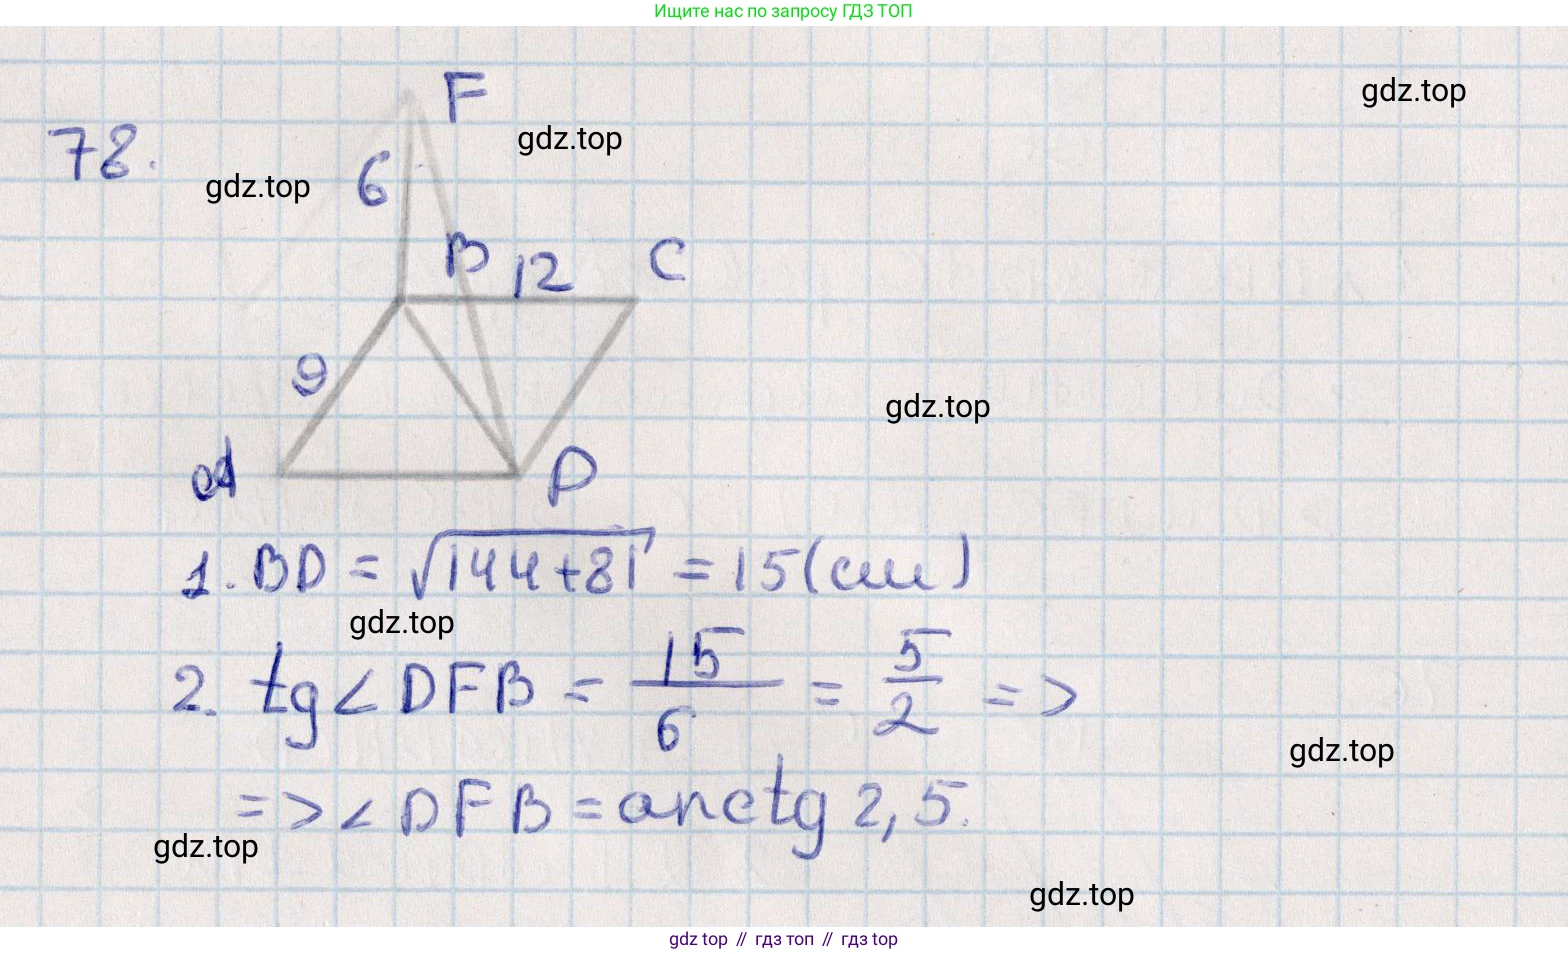 Ищите нас по запросу ГДЗ ТОП
F
gdz.top
gdz.top
78.
gdz.top
6
B 12 C
9
gdz.top
A D
1. BD = √144+81 = 15 (см)
gdz.top
2. tg∠DFB = 15/6 = 5/2 =>
gdz.top
=> ∠DFB = arctg 2,5.
gdz.top
gdz.top
gdz top // гдз топ // гдз top